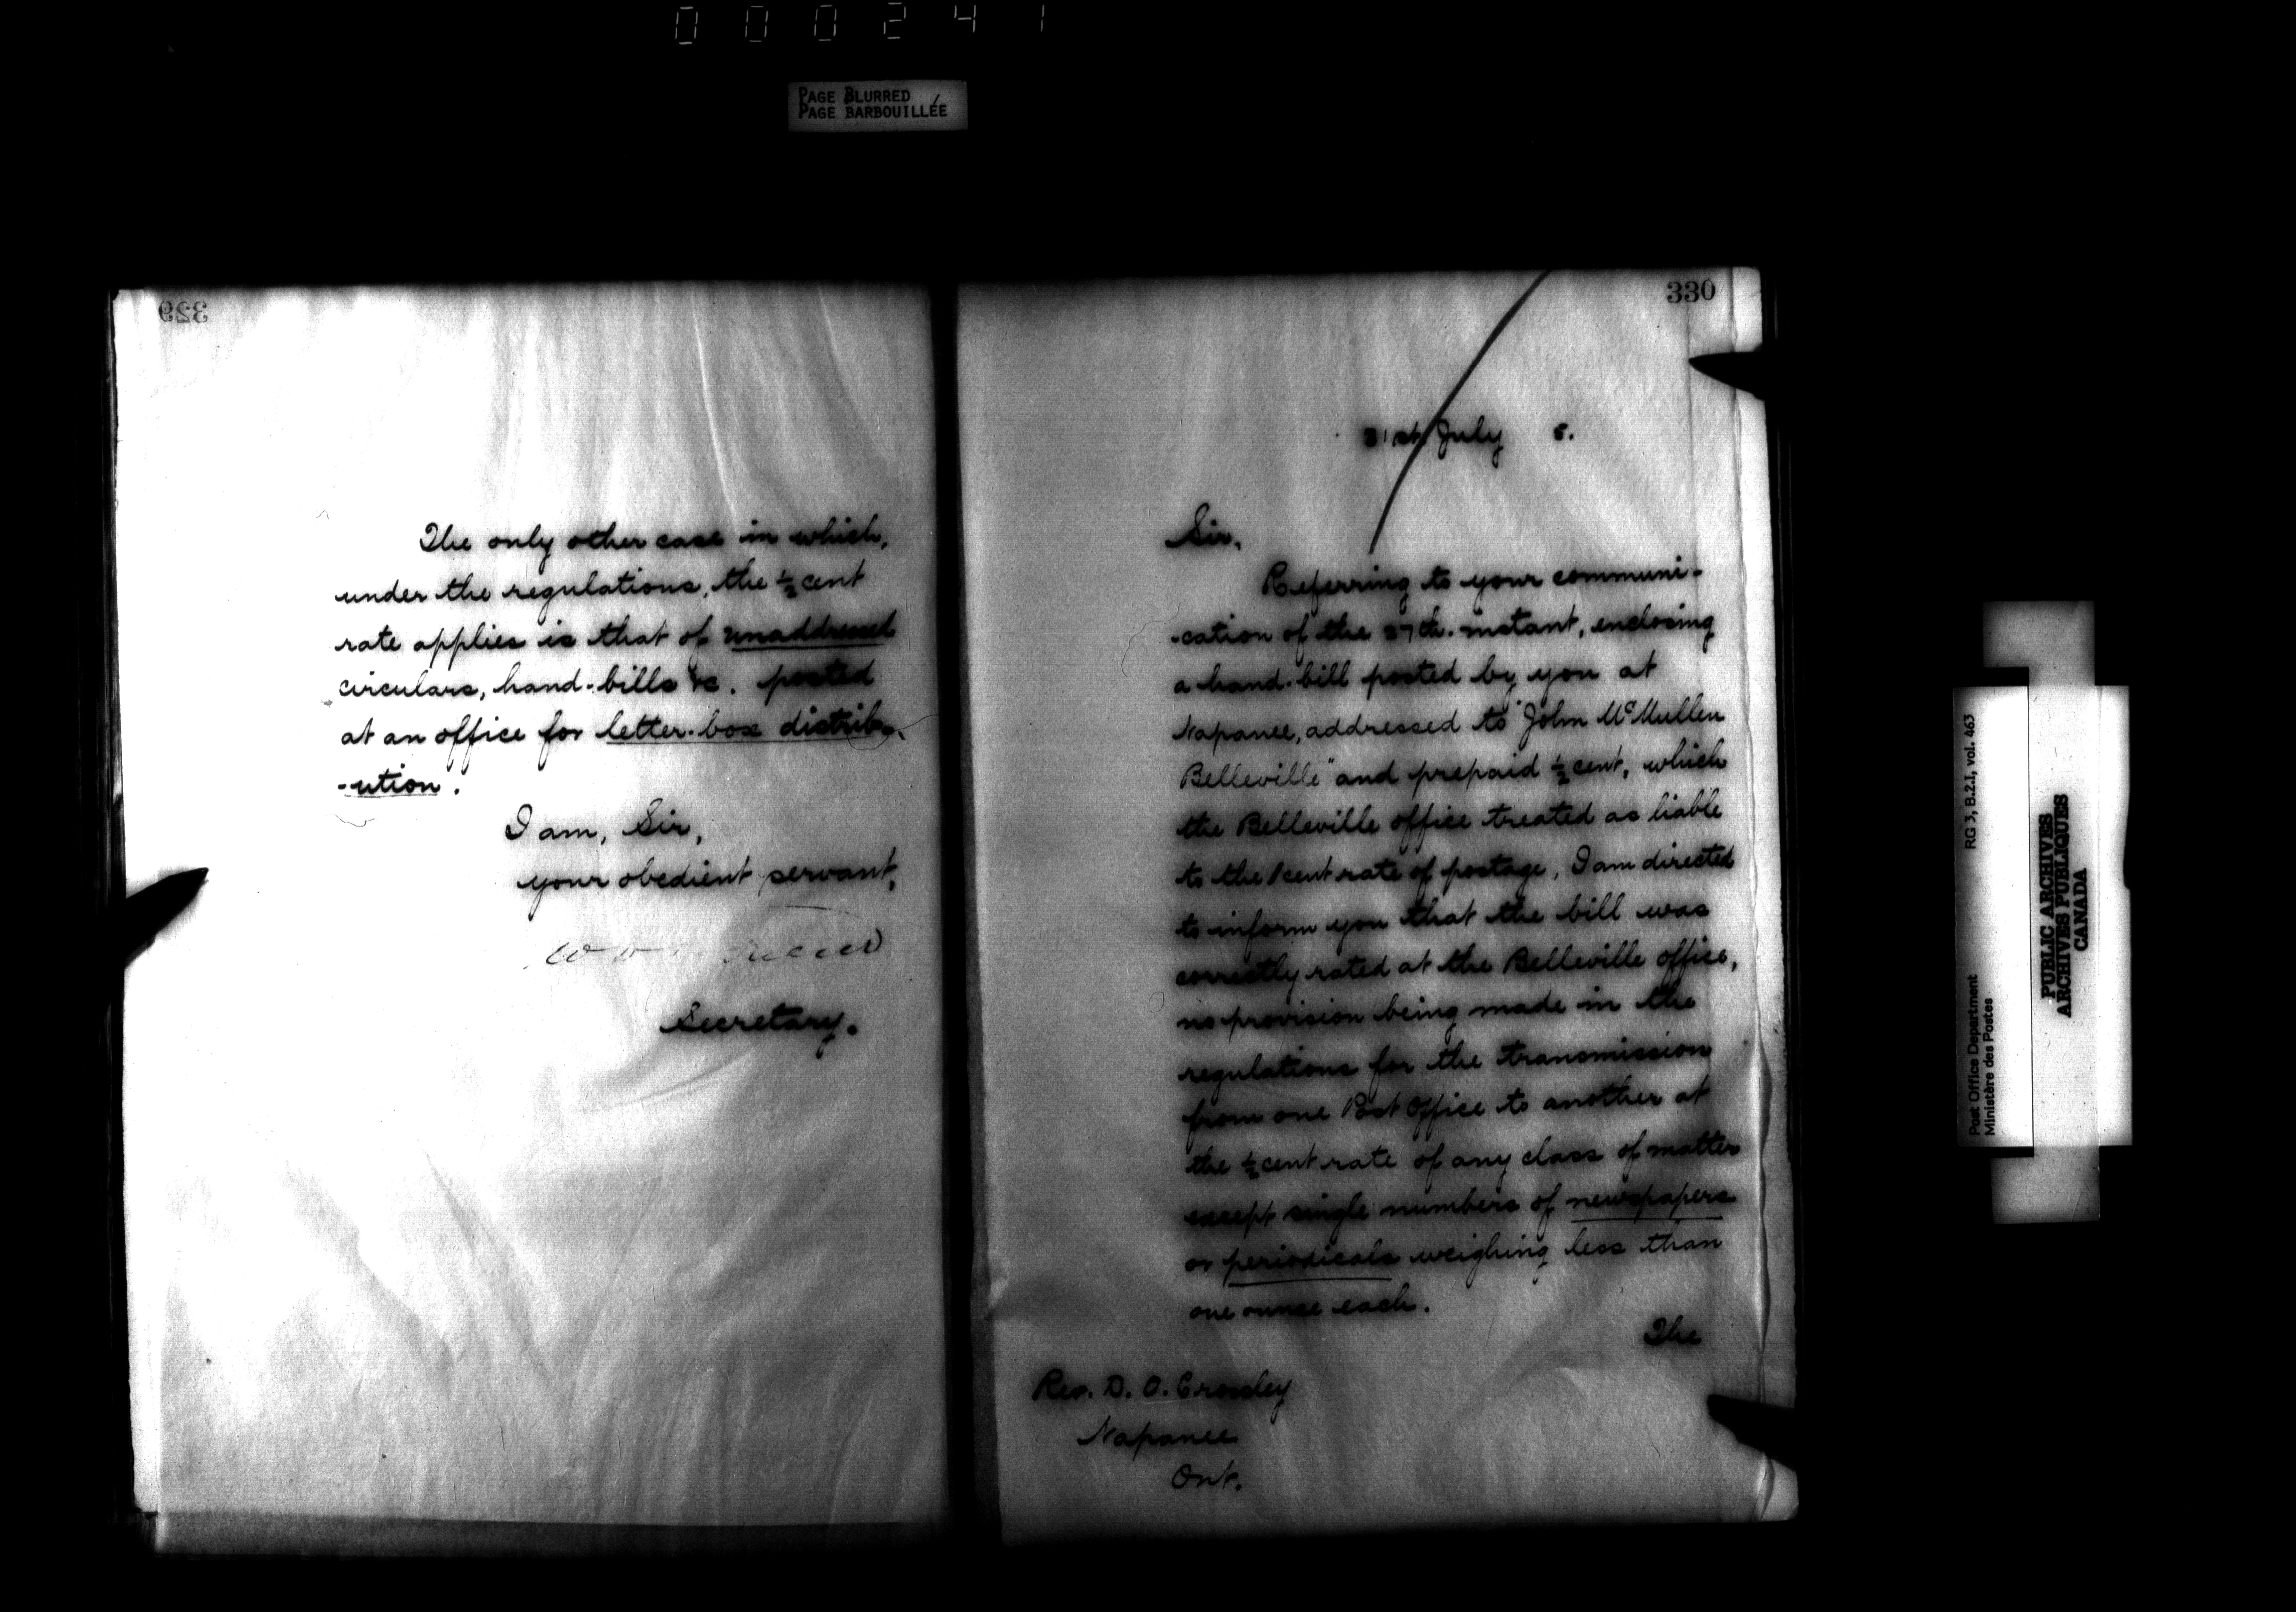 000241
PAGE BLURRED
PAGE BARBOUILLÉE
329
The only other case in which,
under the regulations, the ½ cent
rate applies is that of unaddressed
circulars, hand-bills &c. posted
at an office for letter-box distrib-
-ution.
I am, Sir,
your obedient servant,
Secretary.
330
31st July 8.
Sir,
Referring to your communi-
-cation of the 27th. instant, enclosing
a hand-bill posted by you at
Napanee, addressed to "John McMullen
Belleville" and prepaid ½ cent, which
the Belleville office treated as liable
to the 1 cent rate of postage, I am directed
to inform you that the bill was
correctly rated at the Belleville office,
no provision being made in the
regulations for the transmission
from one Post Office to another at
the ½ cent rate of any class of matter
except single numbers of newspapers
or periodicals weighing less than
one ounce each.
The
Rev. D. O. Crossley
Napanee
Ont.
Post Office Department RG 3, B.2.I, vol. 463
Ministère des Postes
PUBLIC ARCHIVES
ARCHIVES PUBLIQUES
CANADA